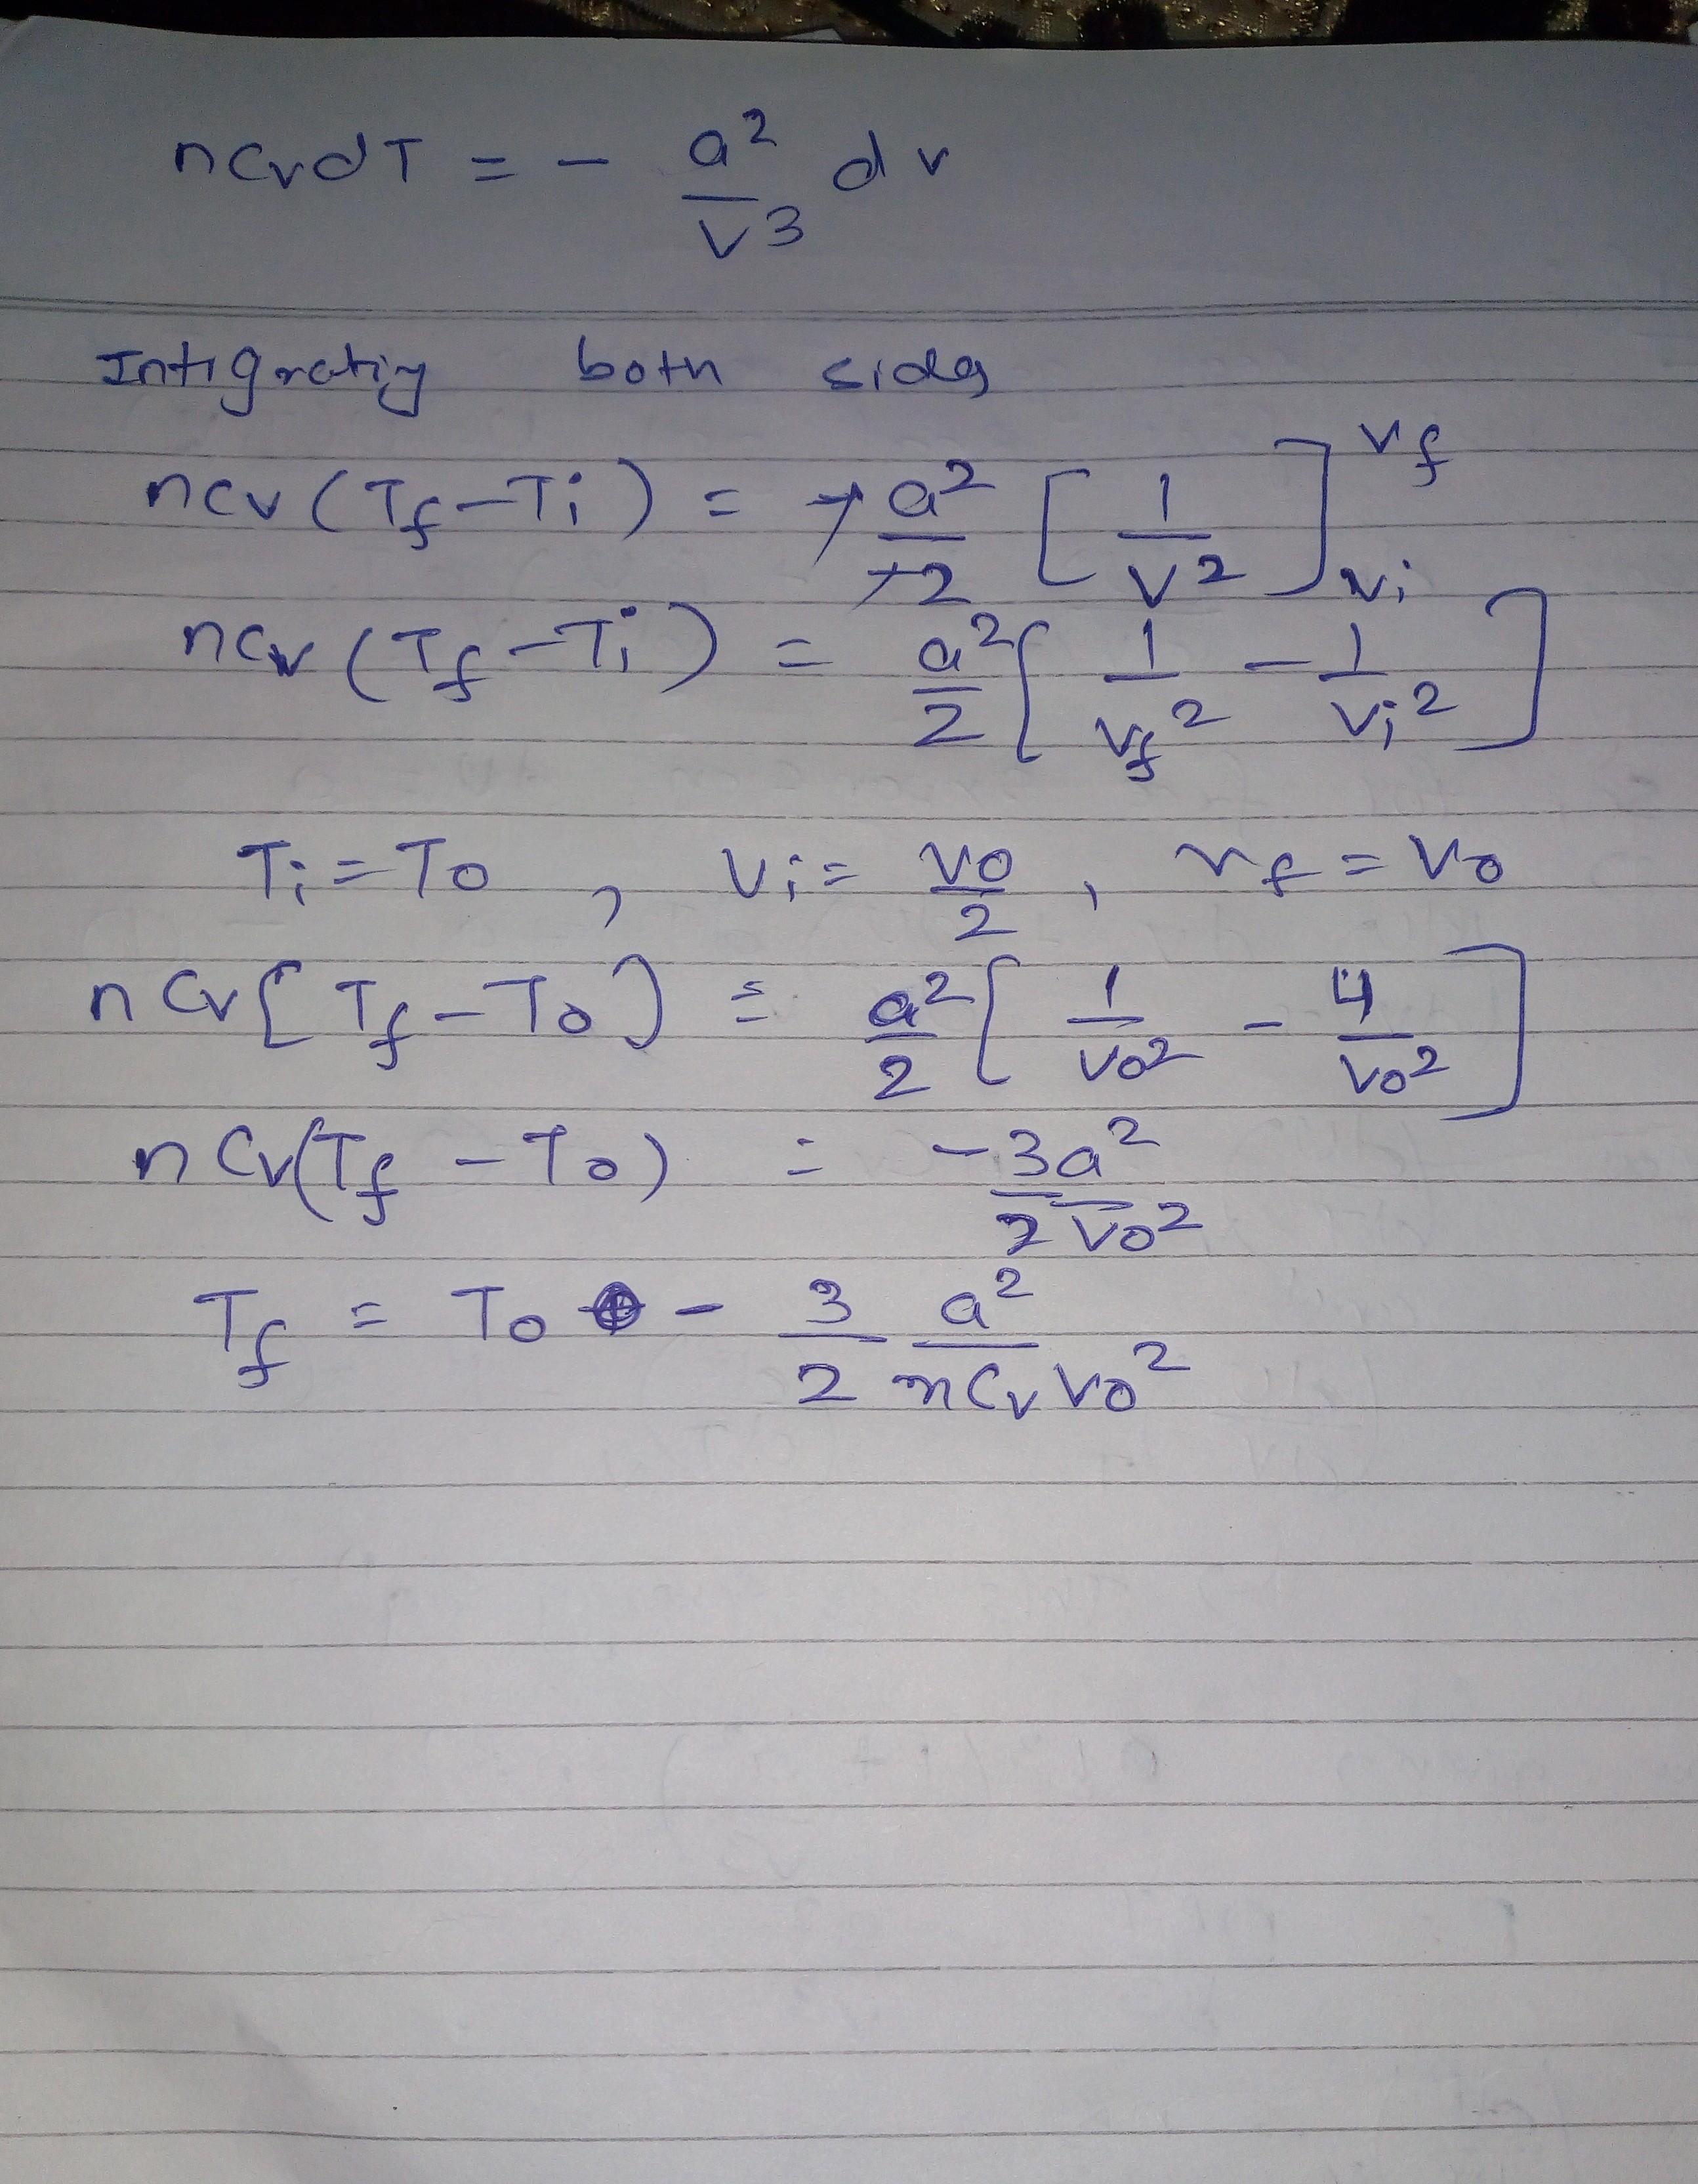 nCvdT = - a²/V³ dv
Intigratiy both sides
ncv (Tf - Ti) = - a²/-2 [1/V²]vf vi
ncv (Tf - Ti) = a²/2 [1/vf² - 1/vi²]
Ti = To , Vi = Vo/2 , vf = Vo
nCv [Tf - To] = a²/2 [1/Vo² - 4/Vo²]
nCv(Tf - To) = -3a²/2Vo²
Tf = To - 3/2 a²/nCvVo²